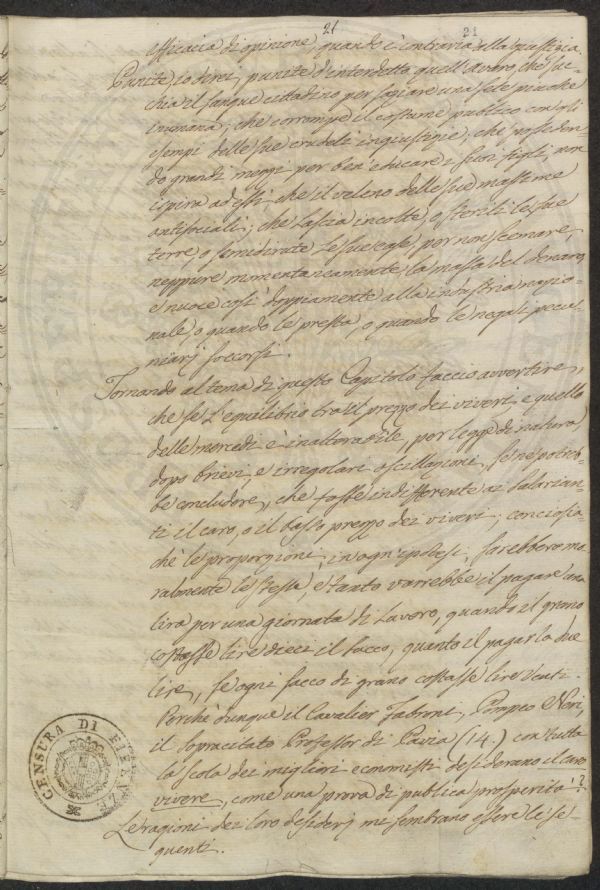 21 21
efficacia di opinione, quando è contraria alla giustizia.
Punite, io direi, punite d'interdetto quell'Avaro, che suc-
chia il sangue cittadino per saziare una sete privata
inumana; che corrompe il costume publico con gli
esempi delle sue crudeli ingiustizie; che posseden-
do grandi mezzi per ben'educare i suoi figli, non
ispira ad essi che il veleno delle sue massime
antisociali; che lascia incolte, o sterili le sue
terre, o semidirute le sue case, per non scemare,
neppure momentaneamente, la massa del denaro,
e nuoce così doppiamente alla industria nazio-
nale, o quando le presta, o quando le nega i pecu-
niarj soccorsi.
Tornando al tema di questo Capitolo faccio avvertire,
che se l'equilibrio tra il prezzo dei viveri, e quello
delle mercedi è inalterabile, per legge di natura,
dopo brevi, e irregolari oscillazioni, se ne potreb-
be concludere, che fosse indifferente ai salarian-
ti il caro, o il basso prezzo dei viveri; conciosia-
chè le proporzioni, in ogn'ipotesi, sarebbero mo-
ralmente le stesse, e tanto varrebbe il pagare una
lira per una giornata di lavoro, quando il grano
costasse lire dieci il sacco, quanto il pagarla due
lire, se ogni sacco di grano costasse lire venti.
Perchè dunque il Cavalier Fabroni, Pompeo Neri,
il sopracitato Professor di Pavia (14.) con tutta
la scola dei migliori economisti desiderano il caro
vivere, come una prova di publica prosperità?
Le ragioni dei loro desiderj mi sembrano essere le se-
guenti.
CENSURA DI FIRENZE